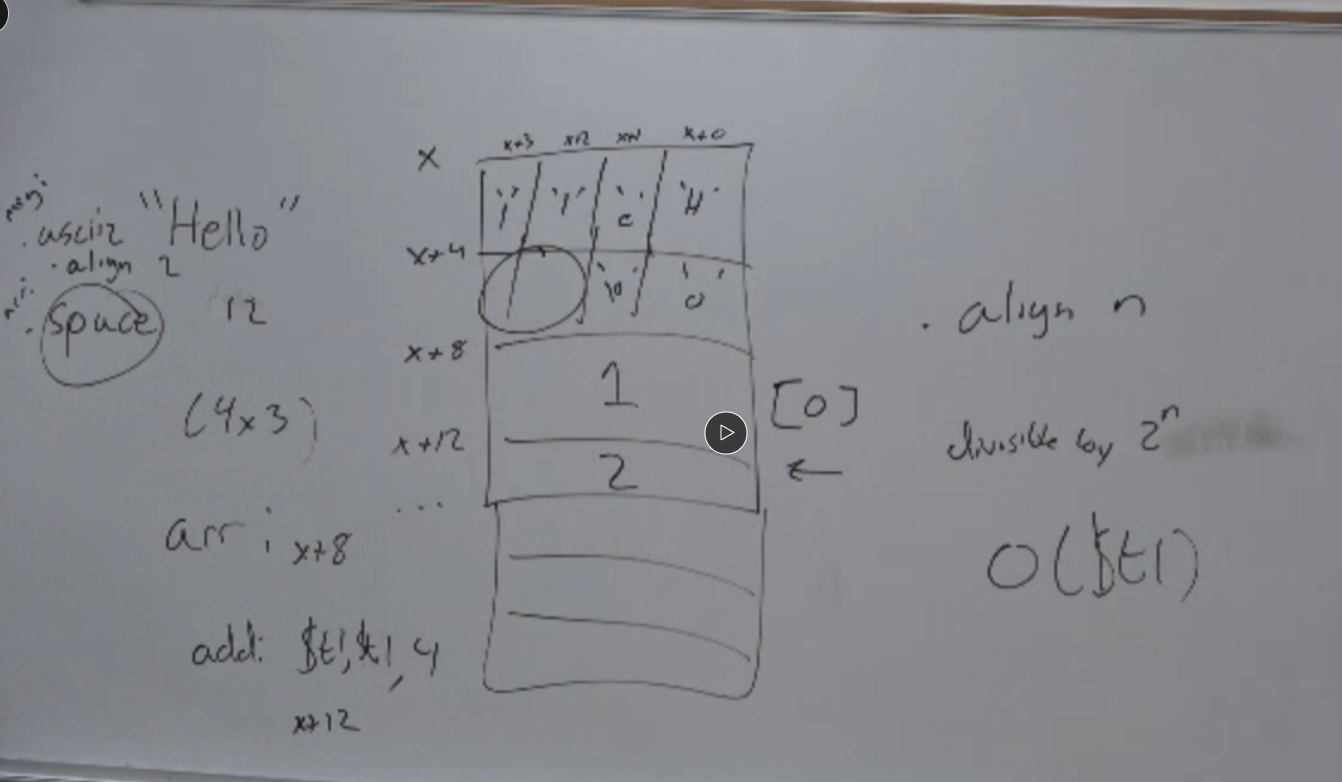 .asciiz "Hello"
.align 2
.space 12
(4x3)
arr: x+8
addi $t1, $t1, 4
x+12
x
x+3 x+2 x+1 x+0
'l' 'l' 'e' 'H'
x+4
'\0' 'o'
x+8
1
[0]
x+12
2
←
...
.align n
divisible by 2ⁿ
0($t1)